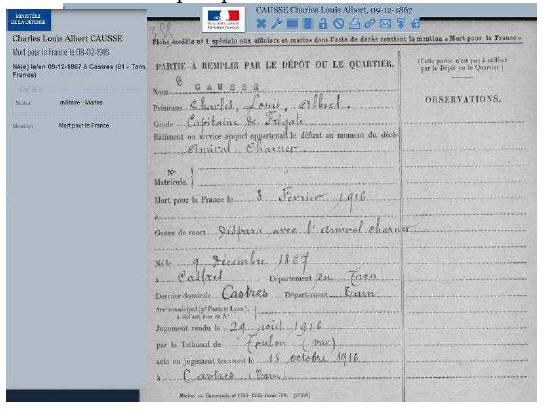 MINISTÈRE
DE LA DÉFENSE
Charles Louis Albert CAUSSE
Mort pour la France le 08-02-1916
Né(e) le/en 09-12-1867 à Castres (81 - Tarn,
France)
Statut militaire - Marine
Mention Mort pour la France
CAUSSE Charles Louis Albert, 09-12-1867
Fiche modèle n° 1 spéciale aux officiers et marins dont l'acte de décès contient la mention « Mort pour la France »
PARTIE À REMPLIR PAR LE DÉPÔT OU LE QUARTIER.
(Cette partie n'est pas à utiliser
par le Dépôt ou le Quartier.)
OBSERVATIONS.
Nom CAUSSE
Prénoms Charles, Louis, Albert.
Grade Capitaine de Frégate
Bâtiment ou service auquel appartenait le défunt au moment du décès
Amiral-Charner
N°
Matricule.
Mort pour la France le 8 Février 1916
à
Genre de mort Disparu avec l'Amiral Charner
Né le 9 Décembre 1867
à Castres Département du Tarn
Dernier domicile Castres Département Tarn
Arr. municipal (pr Paris et Lyon)
à défaut rue et N°
Jugement rendu le 29 août 1916
par le Tribunal de Toulon (Var)
acte ou jugement transcrit le 18 octobre 1916
à Castres (Tarn)